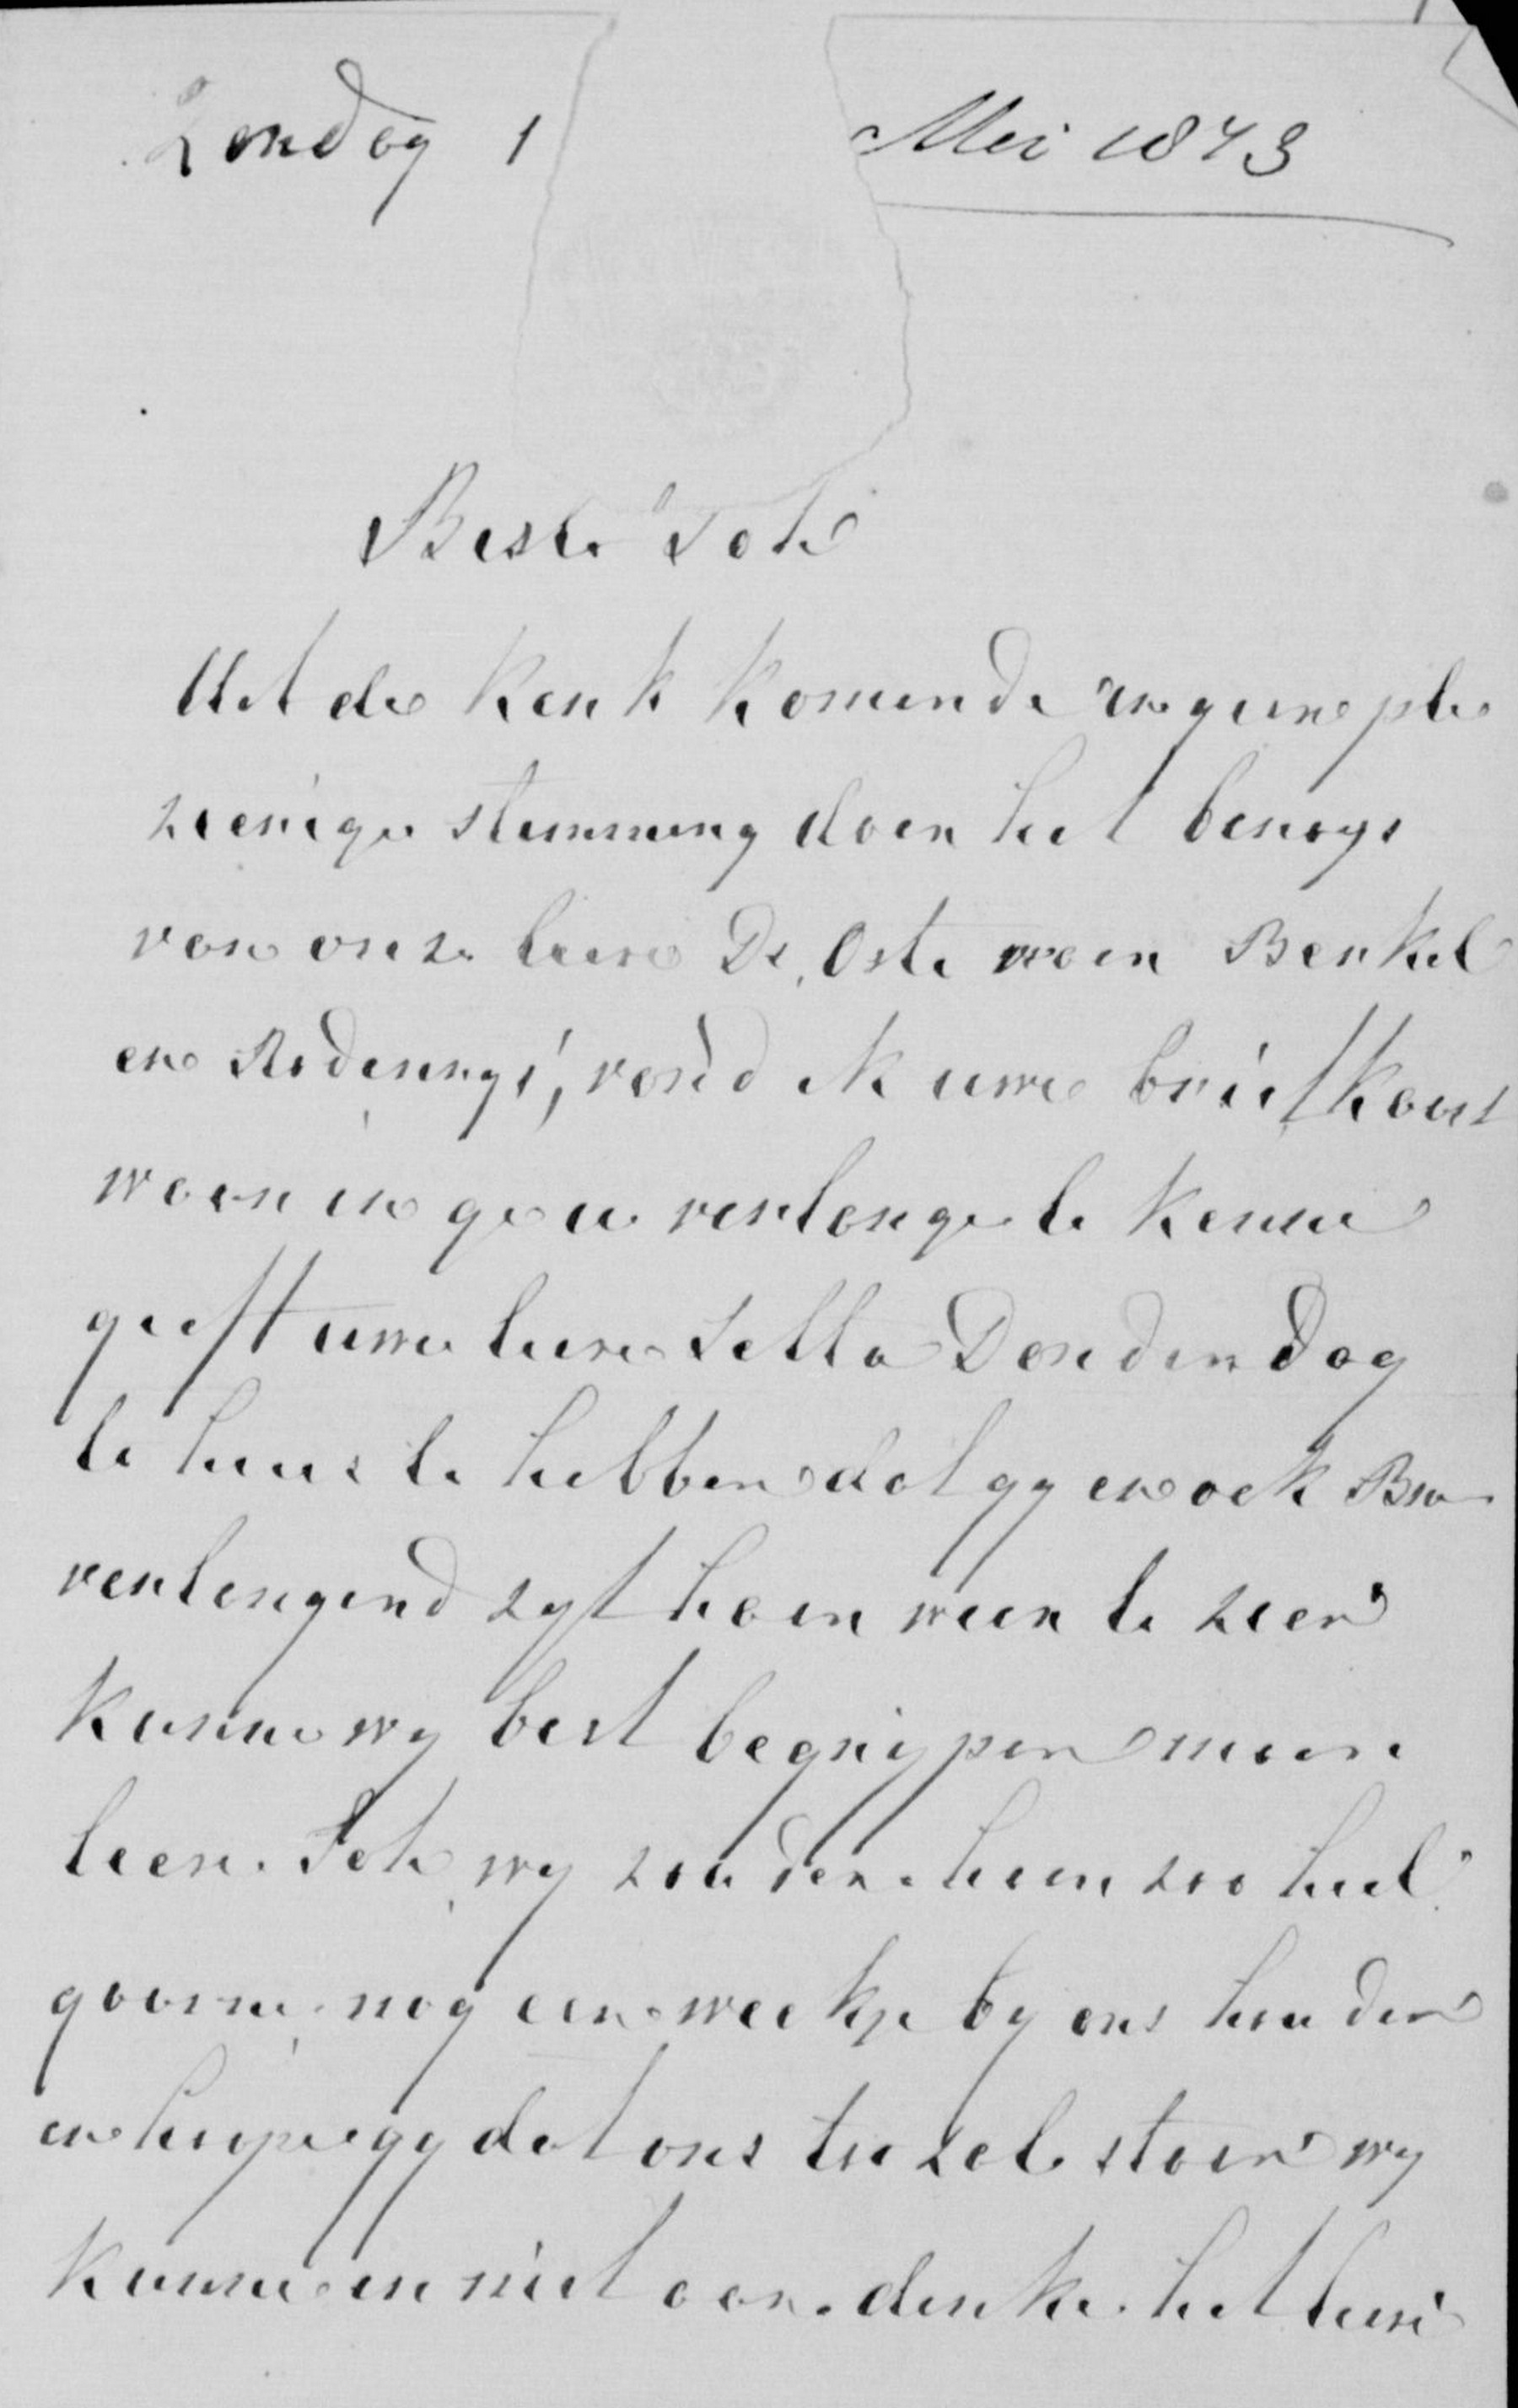 Zondag 1 Mei 1873
Beste Sets
Uit de Kerk komende in geene ple
zierige stemming door het beroep
van onze lieve Ds, Oste naar Berkel
en Rodenrys, vond ik uwe briefkaart
waarin ge u verlange te kenne
geeft uwe lieve Letta Donderdag
te huis te hebben dat gy en ook Bro
verlangend zyt haar weer te zien
kunne wy best begrypen maar
lieve Sets wy zouden haar zoo heel
gaarne nog een weekje by ons houden
en hoope gy dat ons toe zal staan wy
kunne er niet aan denke het lieve